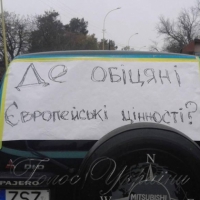 Де обіцяні
Європейські цінності?
Голос України
N
PAJERO
MITSUBISHI
ZSZ